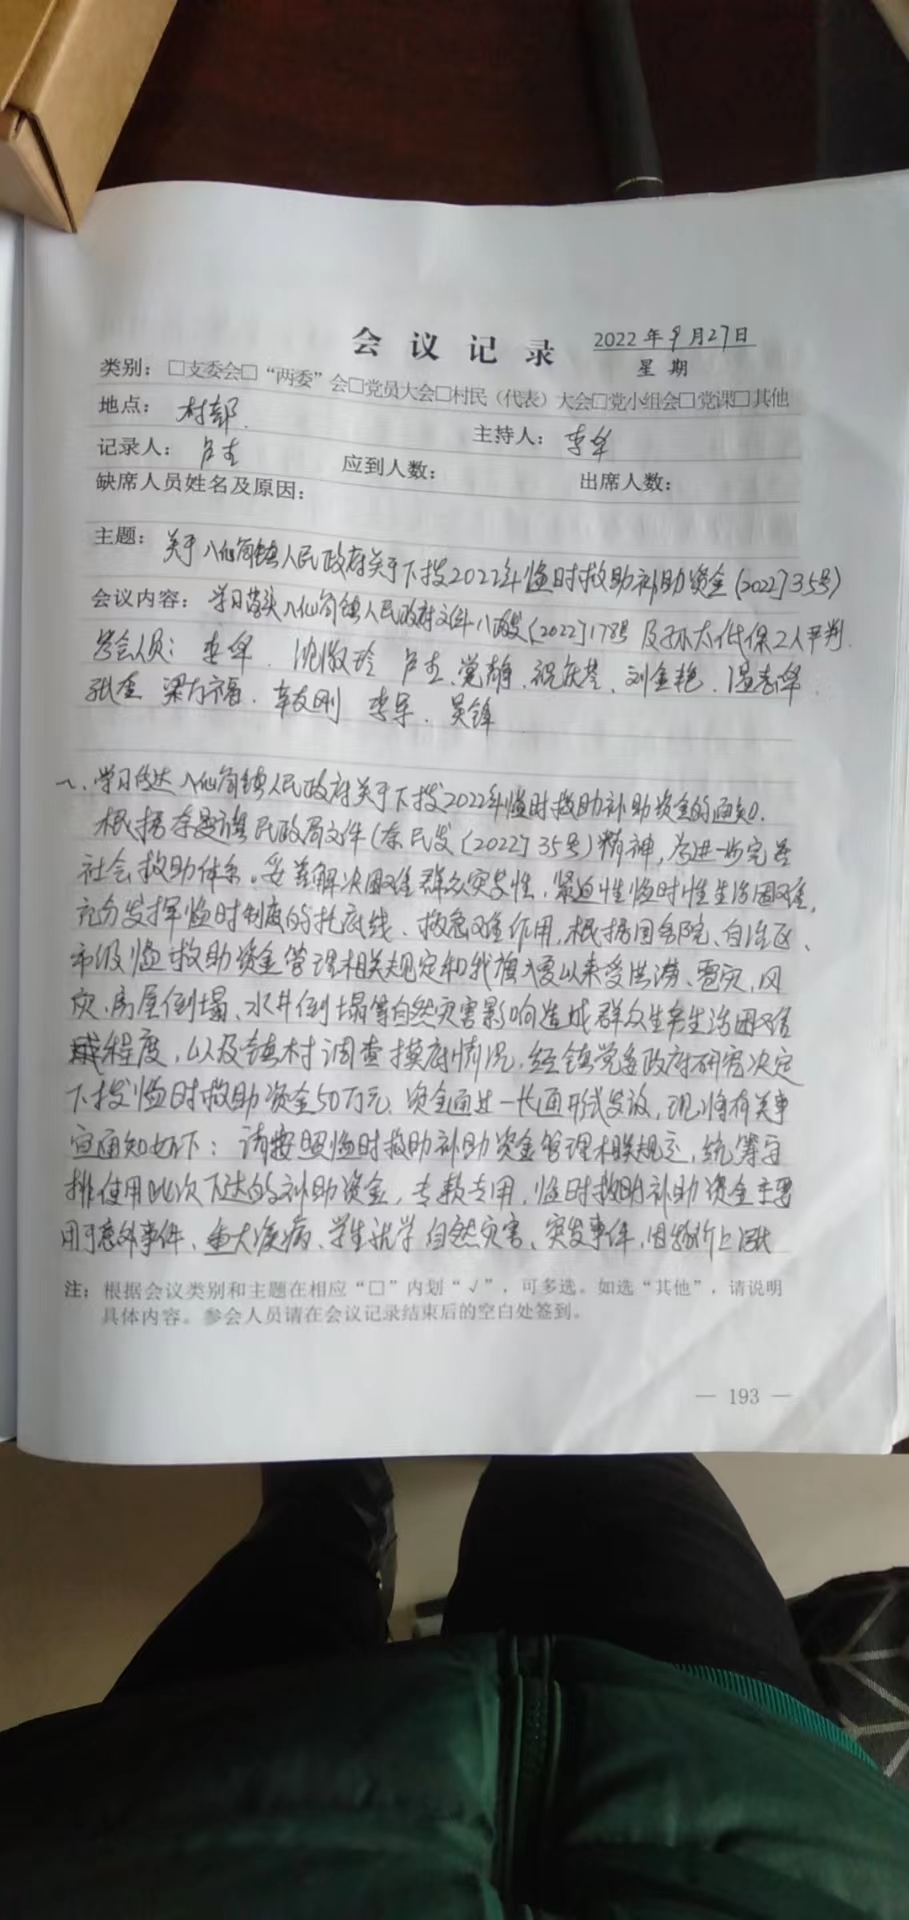 会议记录 2022年9月27日
星期
类别：□支委会□“两委”会□党员大会□村民（代表）大会□党小组会□党课□其他
地点：村部. 主持人：李华
记录人：卢杰 应到人数： 出席人数：
缺席人员姓名及原因：
主题：关于八仙筒镇人民政府关于下拨2022年临时救助补助资金(2022]35号)
会议内容：学习 八仙筒镇人民政府文件八政发(2022]178号 及 低保2人评判.
参会人员：李华. 沈淑玲 卢杰、党雄、祝庆 、刘金艳、温春华.
张 梁方福、 友刚 李军、吴锋
一、学习传达八仙筒镇人民政府关于下拨2022年临时救助补助资金的通知.
根据奈曼旗民政局文件(奈民发(2022]35号)精神,为进一步完善
社会救助体系。妥善解决困难群众突发性、紧迫性临时性生活困难,
充分发挥临时制度的托底线、救急难作用,根据国务院、自治区、
市级临救助资金管理相关规定和我旗入夏以来受洪涝、雹灾、风
灾、房屋倒塌、水井倒塌等自然灾害影响造成群众生产生活困难
程度,以及镇村调查摸底情况,经镇党委政府研究决定
下拨临时救助资金50万元.资金通过一卡通形式发放,现将有关事
宜通知如下:请按照临时救助补助资金管理相关规定,统筹安
排使用此次下达的补助资金,专款专用,临时救助补助资金主要
用于意外事件、重大疾病、学生就学自然灾害、突发事件,因物价上涨
注：根据会议类别和主题在相应“□”内划“√”，可多选。如选“其他”，请说明
具体内容。参会人员请在会议记录结束后的空白处签到。
— 193 —